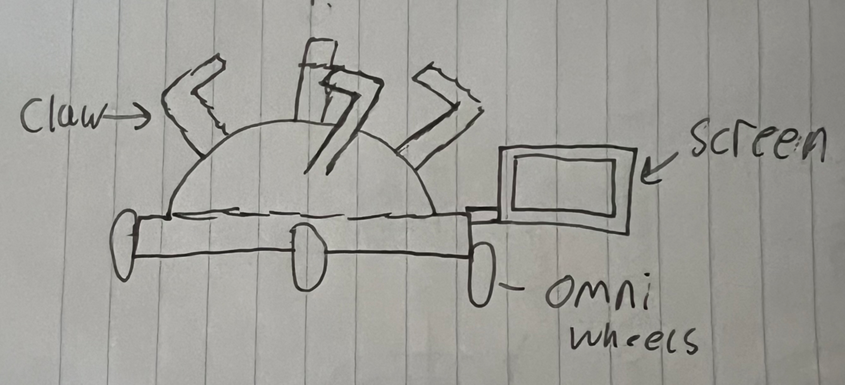 Claw
Screen
omni
wheels